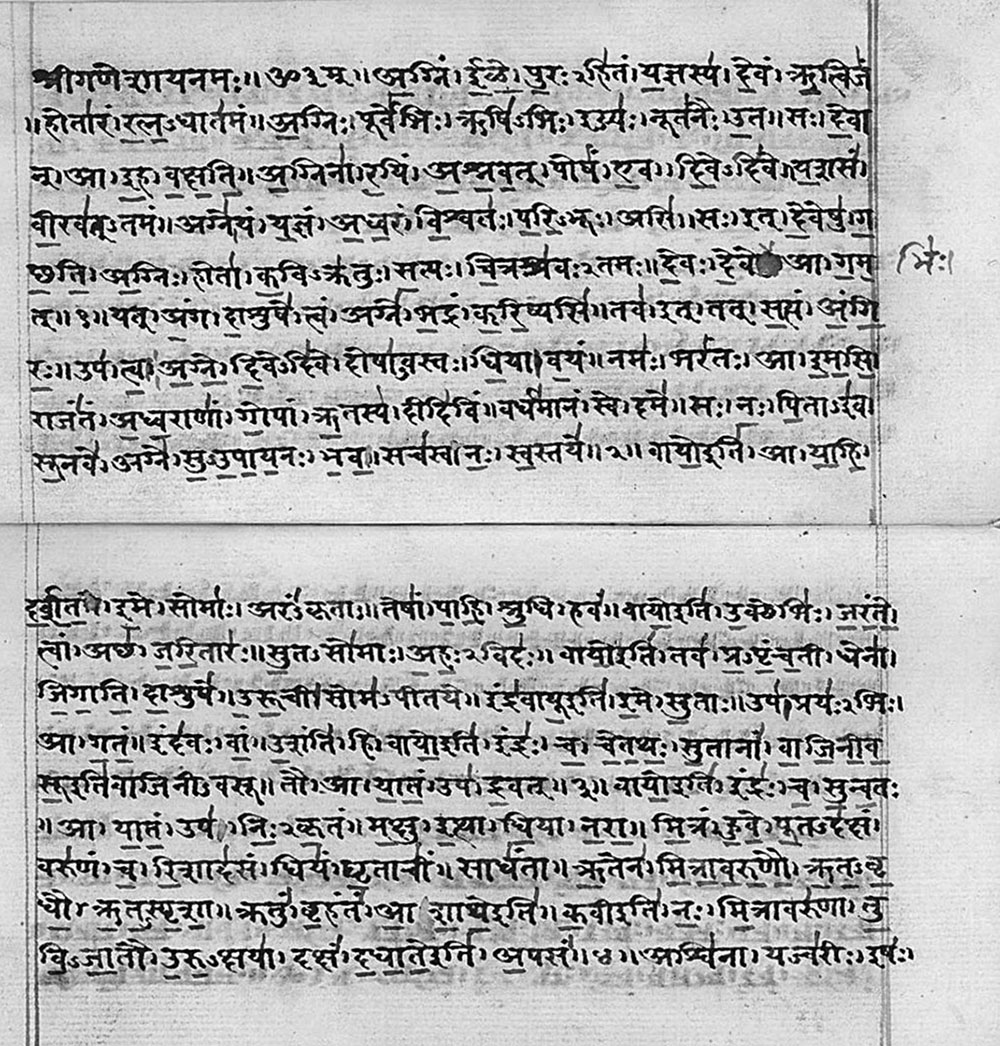 श्रीगणेशायनमः॥ॐ३म्॥अ॒ग्निं। ई॒ळे॒। पु॒रःऽहि॑तं। य॒ज्ञस्य॑। दे॒वं। ऋ॒त्विजं॑
॥होता॑रं। र॒त्न॒ऽधात॑मं॥ अ॒ग्निः। पूर्वे॑भिः। ऋषि॑ऽभिः। ईड्यः॑। नूत॑नैः। उ॒त॥ सः। दे॒वा
न्। आ। इ॒ह। व॒क्ष॒ति॒॥ अ॒ग्निना॑। र॒यिं। अ॒श्न॒व॒त्। पोषं॑। ए॒व। दि॒वेऽदि॑वे॥ य॒शसं॑
वी॒रव॑त्ऽतमं॥ अग्ने॑। यं। य॒ज्ञं। अ॒ध्व॒रं। वि॒श्वतः॑। प॒रि॒ऽभूः। असि॑॥ सः। इत्। दे॒वेषु॑। ग॒
छ॒ति॒। अ॒ग्निः। होता॑। क॒विऽक्र॑तुः। स॒त्यः। चि॒त्रश्र॑वःऽतमः॥ दे॒वः। दे॒वे आ। ग॒म॒
त्॥१॥ यत्। अं॒ग। दा॒शुषे॑। त्वं। अग्ने॑। भ॒द्रं। क॒रि॒ष्यसि॑॥ तव॑। इत्। तत्। स॒त्यं। अं॒गि॒
रः॒॥ उप॑। त्वा॒। अ॒ग्ने॒। दि॒वेऽदि॑वे। दोषा॑ऽवस्तः। धि॒या। व॒यं॥ नमः॑। भरं॑तः। आ। इ॒म॒सि॒
राजं॑तं। अ॒ध्व॒राणां॑। गो॒पां। ऋ॒तस्य॑। दीदि॑विं॥ वर्ध॑मानं। स्वे। दमे॑॥ सः। नः॒। पि॒ताऽइ॑व।
सू॒नवे॑। अग्ने॑। सु॒ऽउ॒पा॒य॒नः। भ॒व॒॥ सच॑स्व। नः॒। स्व॒स्तये॑॥२॥ वायो॒इति॑। आ। या॒हि॒।
भिः॑।
द॒र्श॒त॒। इ॒मे। सोमाः॑। अरं॑ऽकृताः॥ तेषां॑। पा॒हि॒। श्रु॒धि। हवं॑॥ वायो॒इति॑। उ॒क्थेभिः॑। ज॒रं॒ते॒
त्वां। अछ॑। ज॒रि॒तारः॑॥ सु॒तऽसो॑माः। अ॒हः॒ऽविदः॑॥ वायो॒इति॑। तव॑। प्र॒ऽपृं॒च॒ती। धेना॑।
जि॒गा॒ति॒। दा॒शुषे॑॥ उ॒रू॒ची। सोम॑ऽपीतये॥ इंद्र॑वायू॒इति॑। इ॒मे। सु॒ताः॥ उप॑। प्रयः॑ऽभिः।
आ। ग॒तं॒॥ इंद॑वः। वां॒। उ॒शंति॑। हि॥ वायो॒इति॑। इंद्रः॑। च॒। चे॒त॒थः॒। सु॒तानां॑। वा॒जि॒नी॒व॒
सू॒इति॑वाजिनीऽवसू॥ तौ। आ। या॒तं॒। उप॑। द्र॒वत्॥३॥ वायो॒इति॑। इंद्रः॑। च॒। सु॒न्व॒तः
॥आ। या॒तं॒। उप॑। निः॒ऽकृ॒तं॥ म॒क्षु। इ॒त्था। धि॒या। न॒रा॒॥ मि॒त्रं। हु॒वे॒। पू॒तऽद॑क्षं।
वरु॑णं। च॒। रि॒शाद॑सं॥ धियं॑। घृ॒ताचीं॑। साधं॑ता॥ ऋ॒तेन॑। मि॒त्रा॒व॒रु॒णौ॒। ऋ॒त॒ऽवृ॒
धौ॒। ऋ॒त॒ऽस्पृ॒शा॒॥ क्रतुं॑। बृ॒हंतं॑। आ॒शा॒थे॒इति॑॥ क॒वीइति॑। नः॒। मि॒त्रावरु॑णा। तु॒
वि॒ऽजा॒तौ। उ॒रु॒ऽक्षया॑॥ दक्षं॑। द॒धा॒ते॒इति॑। अ॒पसं॑॥४॥ अश्वि॑ना। यज्व॑रीः। इषः॑।